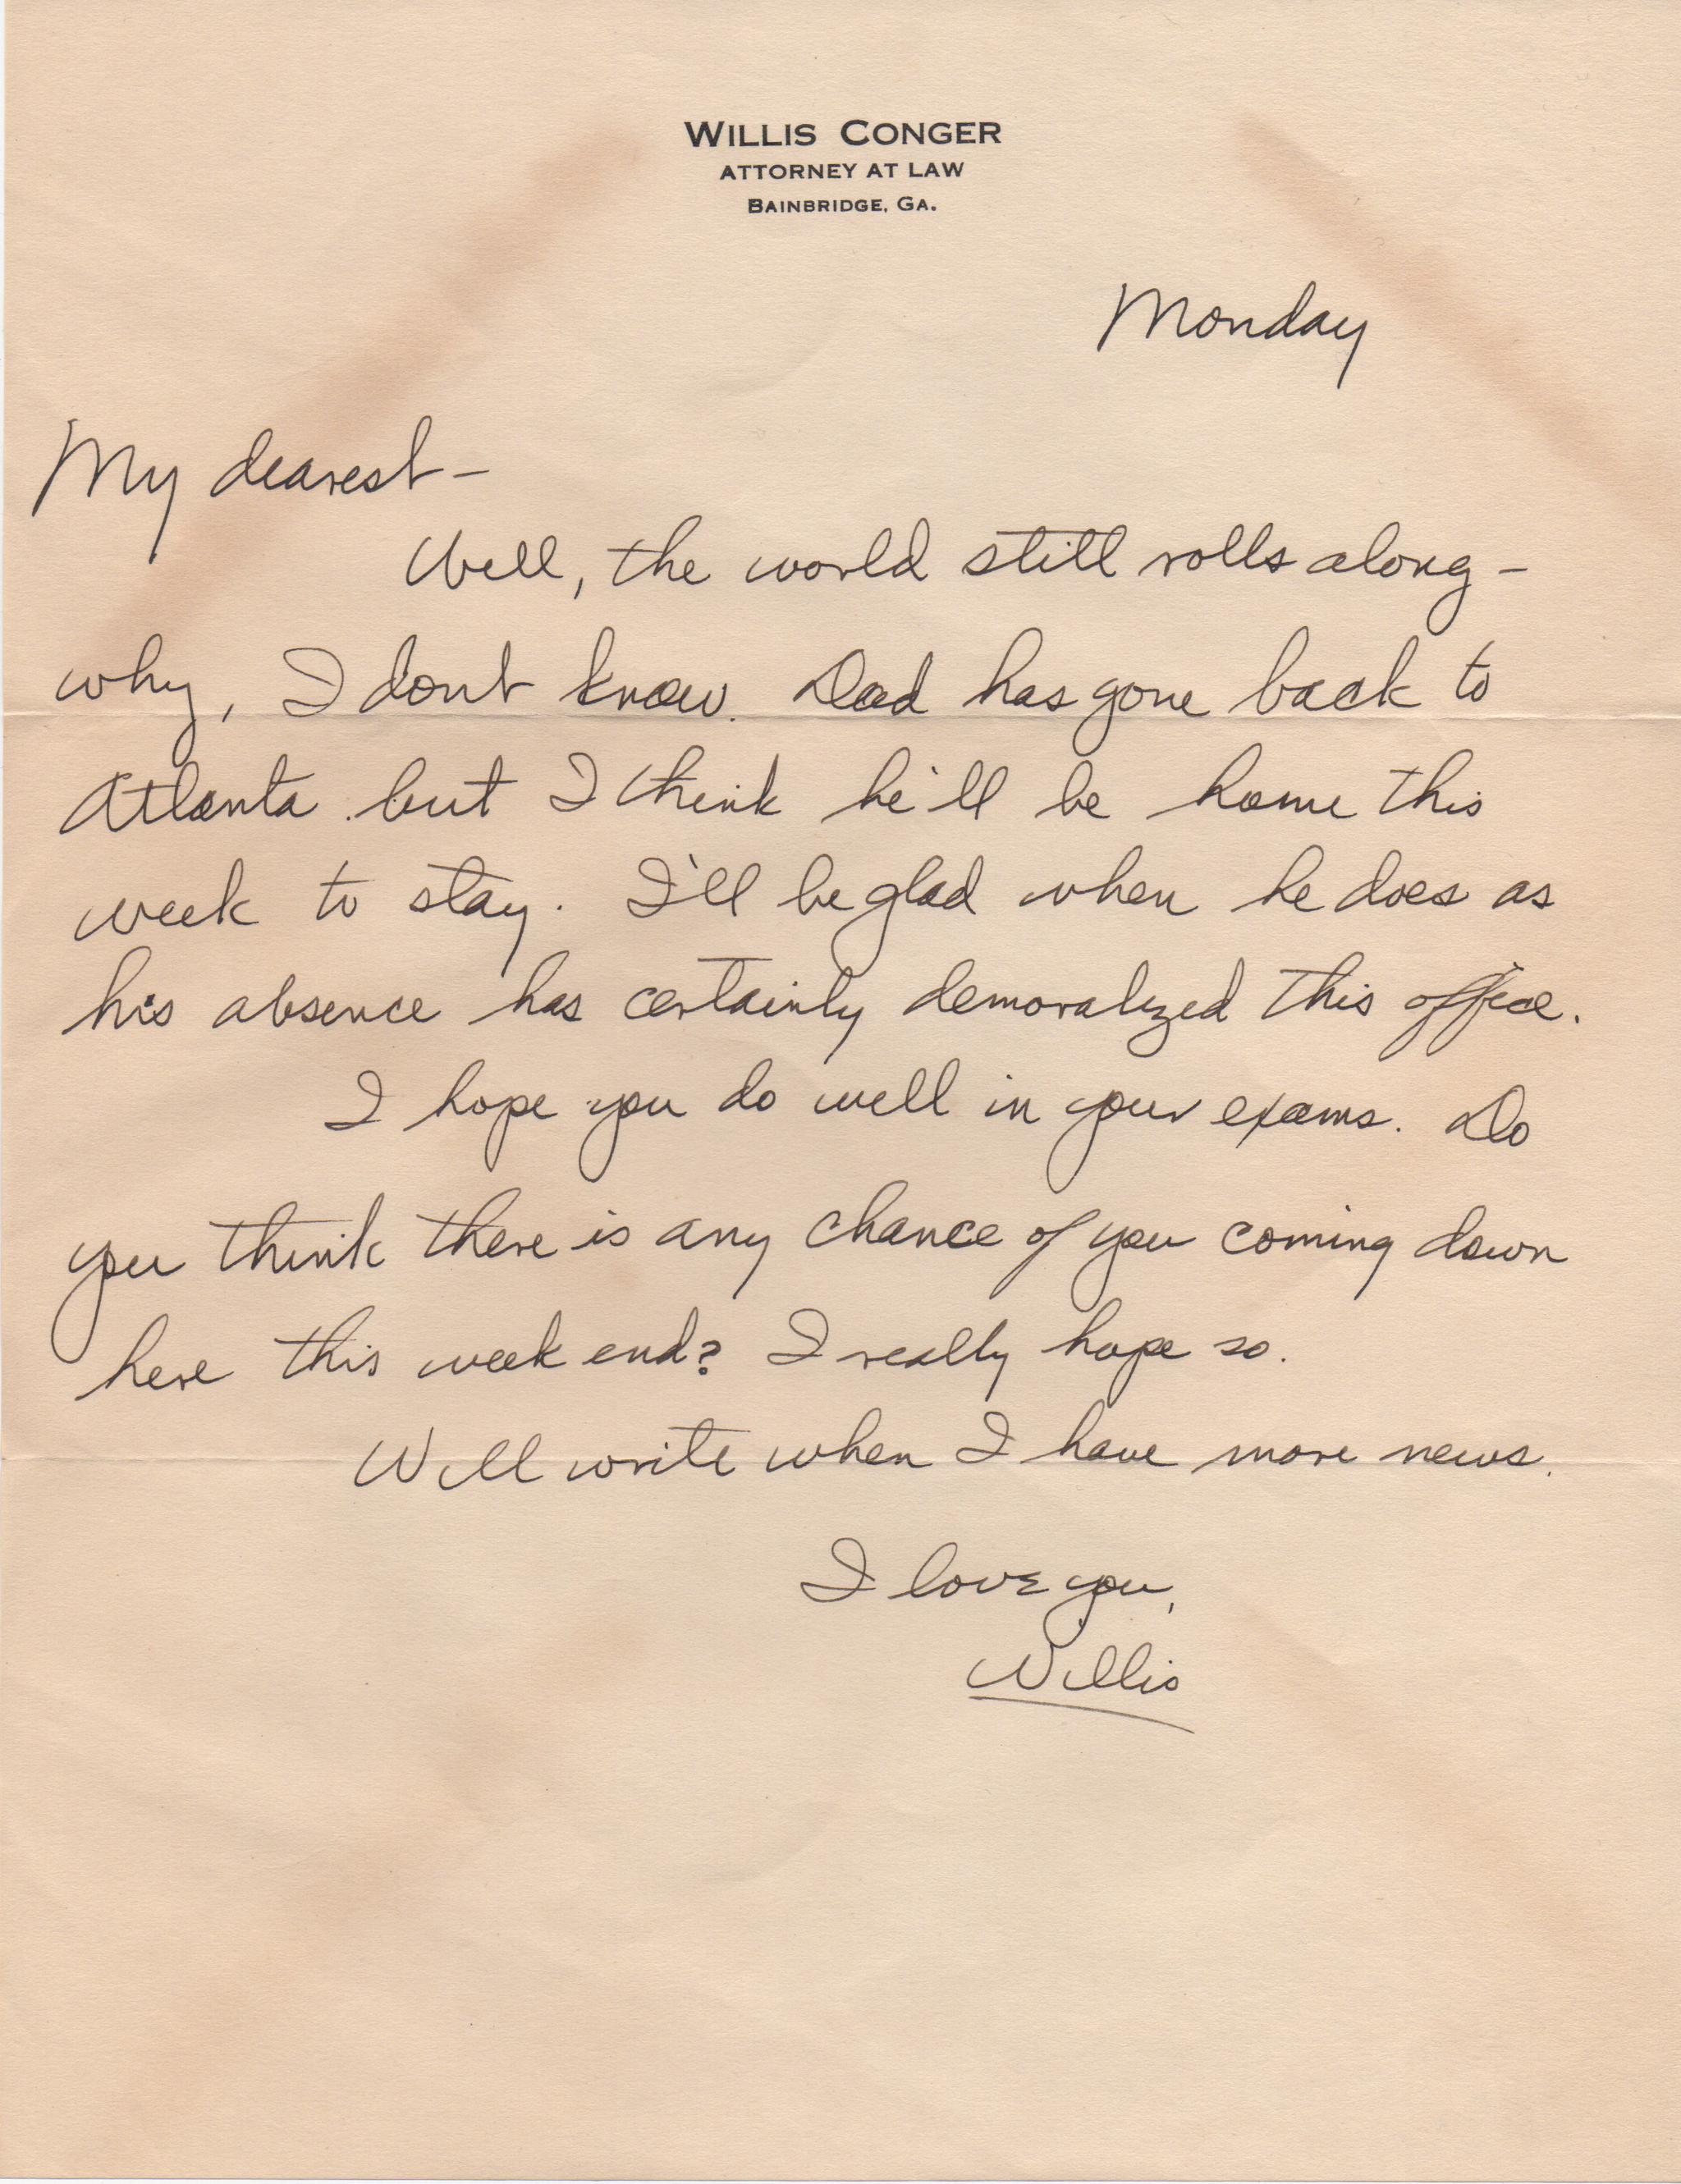 WILLIS CONGER
ATTORNEY AT LAW
BAINBRIDGE, GA.
Monday
My dearest -
Well, the world still rolls along -
why, I dont know. Dad has gone back to
Atlanta but I think he'll be home this
week to stay. I'll be glad when he does as
his absence has certainly demoralized this office.
I hope you do well in your exams. Do
you think there is any chance of you coming down
here this week end? I really hope so.
Will write when I have more news.
I love you,
Willis